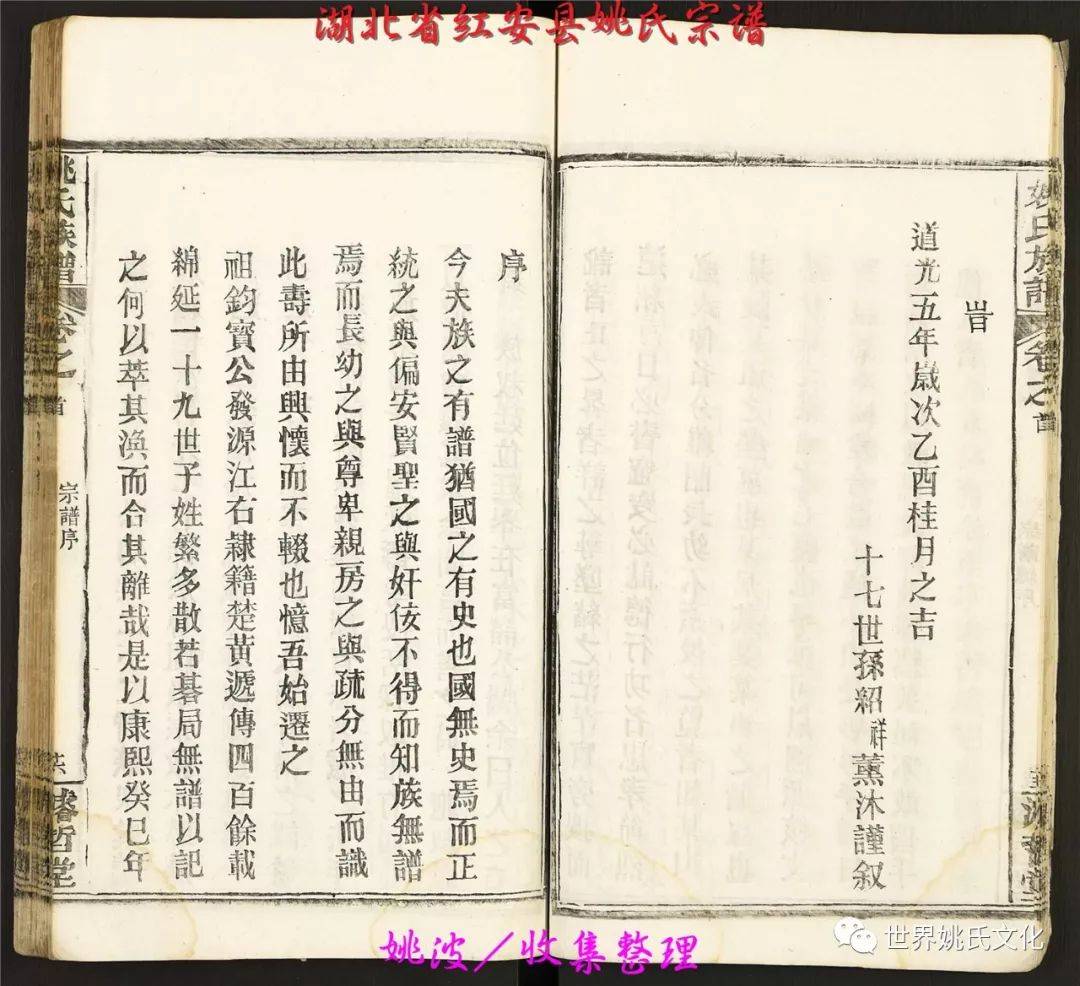 湖北省红安县姚氏宗谱
姚氏族譜
卷之
首
旹
道光五年歲次乙酉桂月之吉
十七世孫紹祥薰沐謹叙
序
今夫族之有譜猶國之有史也國無史焉而正
統之與偏安賢聖之與奸佞不得而知族無譜
焉而長幼之與尊卑親房之與疏分無由而識
此壽所由興懷而不輟也憶吾始遷之
祖鈞寶公發源江右隸籍楚黃遞傳四百餘載
綿延一十九世子姓繁多散若碁局無譜以記
之何以萃其渙而合其離哉是以康熙癸巳年
姚氏族譜
卷之
首
宗譜序
濬哲堂
姚波/收集整理
世界姚氏文化